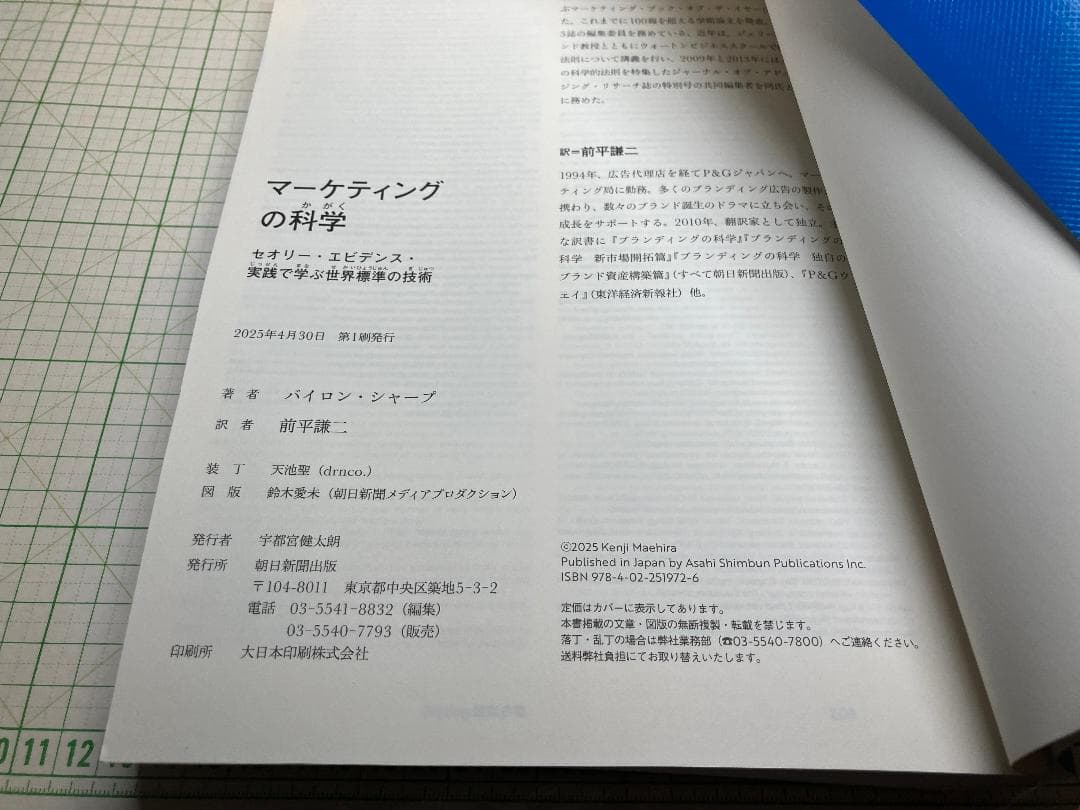 ぶマーケティング・ブック・オブ・ザ・イヤー
た。これまでに100報を超える学術論文を発表、
5誌の編集委員を務めている。近年は、ジェリー・
ンド教授とともにウォートンビジネススクールで
法則について講義を行い、2009年と2013年には
の科学的法則を特集したジャーナル・オブ・アド
ジング・リサーチ誌の特別号の共同編集者を同氏と
に務めた。
訳=前平謙二
1994年、広告代理店を経てP&Gジャパンへ。マー
ティング局に勤務。多くのブランディング広告の製作
携わり、数々のブランド誕生のドラマに立ち会い、その
成長をサポートする。2010年、翻訳家として独立。主
な訳書に『ブランディングの科学』『ブランディングの
科学 新市場開拓篇』『ブランディングの科学 独自の
ブランド資産構築篇』(すべて朝日新聞出版)、『P&Gウ
ェイ』(東洋経済新報社)他。
マーケティング
かがく
の科学
セオリー・エビデンス・
じっせん まな せかいひょうじゅん ぎじゅつ
実践で学ぶ世界標準の技術
2025年4月30日 第1刷発行
著者 バイロン・シャープ
訳者 前平謙二
装丁 天池聖(drnco.)
図版 鈴木愛未(朝日新聞メディアプロダクション)
発行者 宇都宮健太朗
発行所 朝日新聞出版
〒104-8011 東京都中央区築地5-3-2
電話 03-5541-8832(編集)
03-5540-7793(販売)
印刷所 大日本印刷株式会社
©2025 Kenji Maehira
Published in Japan by Asahi Shimbun Publications Inc.
ISBN 978-4-02-251972-6
定価はカバーに表示してあります。
本書掲載の文章・図版の無断複製・転載を禁じます。
落丁・乱丁の場合は弊社業務部(☎03-5540-7800)へご連絡ください。
送料弊社負担にてお取り替えいたします。
0 11 12